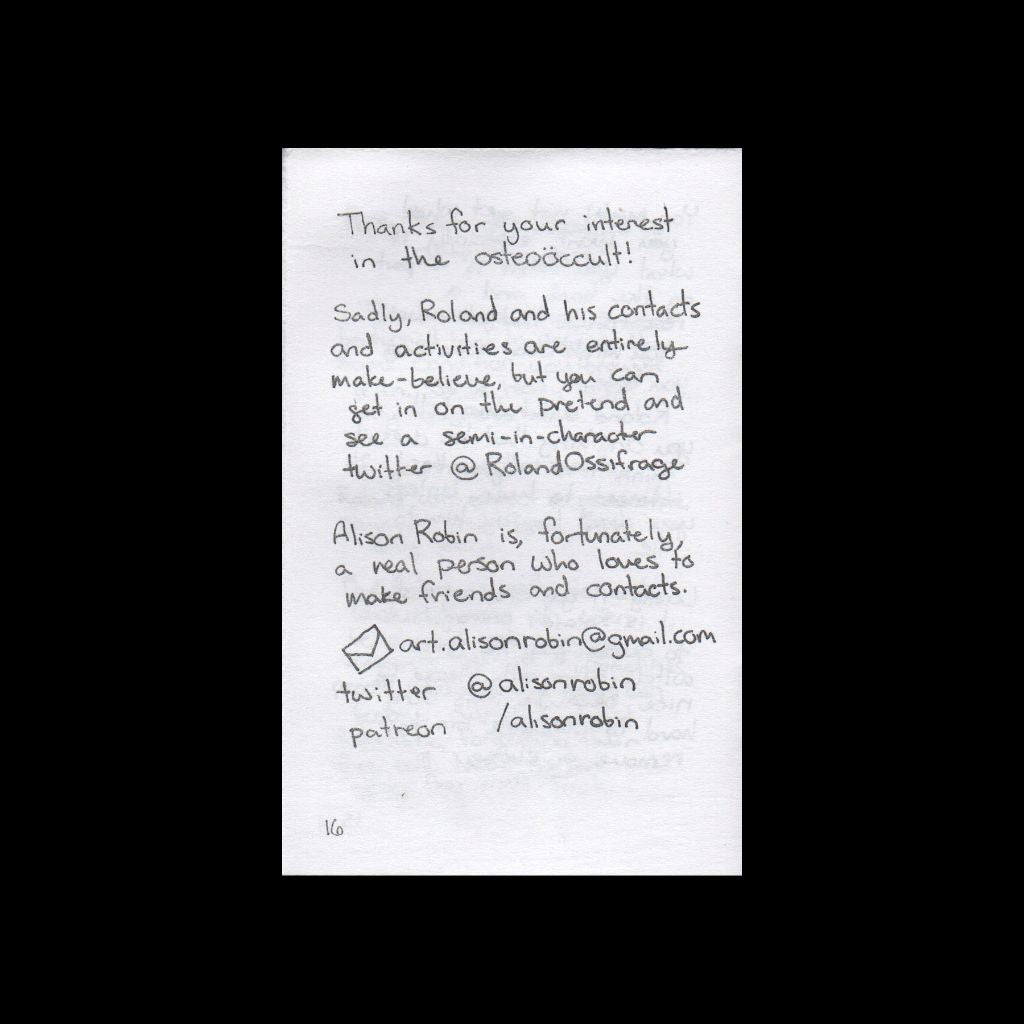 Thanks for your interest
in the osteoöccult!
Sadly, Roland and his contacts
and activities are entirely
make-believe, but you can
get in on the pretend and
see a semi-in-character
twitter @RolandOssifrage
Alison Robin is, fortunately,
a real person who loves to
make friends and contacts.
art.alisonrobin@gmail.com
twitter @alisonrobin
patreon /alisonrobin
16